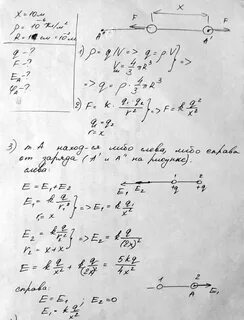 x = 10м
ρ = 10⁻⁶ Кл/м³
R = 10 см = 10⁻¹м
q - ?
F - ?
E_A - ?
φ - ?
x
F
F
A'
1) ρ = q/V => q = ρV
V_ш = 4/3 πR³
=>
=> q = ρ · 4/3 πR³
2) F = k · q₁·q₂/r²
q₁ = q₂
r = x
=> F = k q²/x²
3) т. А наход-ся либо слева, либо справа
от заряда (A' и A" на рисунке).
слева:
E = E₁ + E₂
E₁ E₂ 1 2
+q +q
E₁ = k q/r₁²
r₁ = x
=> E₁ = k q/x²
E₂ = k q/r₂²
r₂ = x + x
=> E₂ = k q/(2x)²
E = k q/x² + k q/(2x)² = 5kq/4x²
справа:
E = E₁, E₂ = 0
E₁ = k q/x²
1 2
A E₁